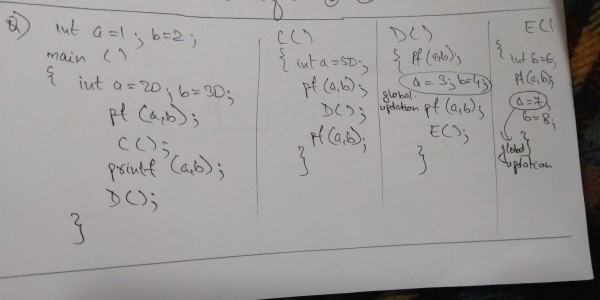 Q)
int a=1; b=2;
main ()
{ int a=20; b=30;
pf (a,b);
C();
printf (a,b);
D();
}
C()
{ int a=50;
pf(a,b);
D();
pf(a,b);
}
D()
{ pf(a,b);
a=3; b=4;
global
updation pf(a,b);
E();
}
E()
{
int b=6;
pf(a,b);
a=7;
b=8;
}
global
updation